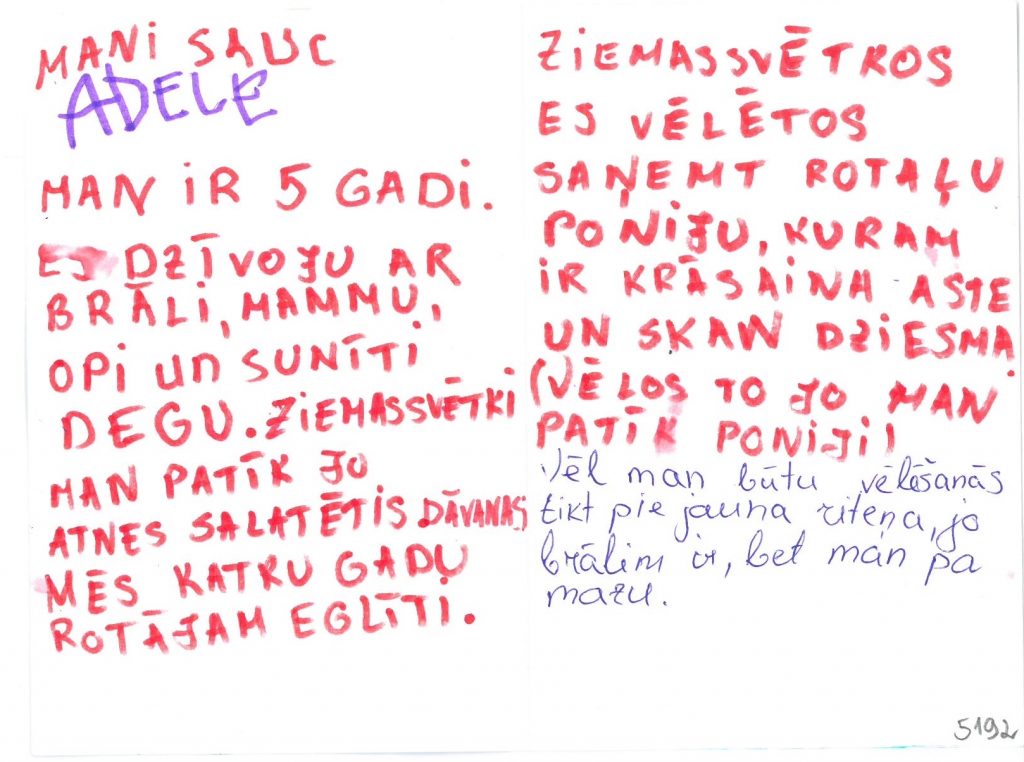 MANI SAUC
ADELE
MAN IR 5 GADI.
ES DZĪVOJU AR
BRĀLI, MAMMU,
OPI UN SUNĪTI
DEGU. ZIEMASSVĒTKI
MAN PATĪK JO
ATNES SALATĒTIS DĀVANAS
MĒS KATRU GADU
ROTĀJAM EGLĪTI.
ZIEMASSVĒTKOS
ES VĒLĒTOS
SAŅEMT ROTAĻU
PONIJU, KURAM
IR KRĀSAINA ASTE
UN SKAN DZIESMA
(VĒLOS TO JO MAN
PATĪK PONIJI)
Vēl man būtu vēlēšanās
tikt pie jauna riteņa, jo
brālim ir, bet man pa
mazu.
5192